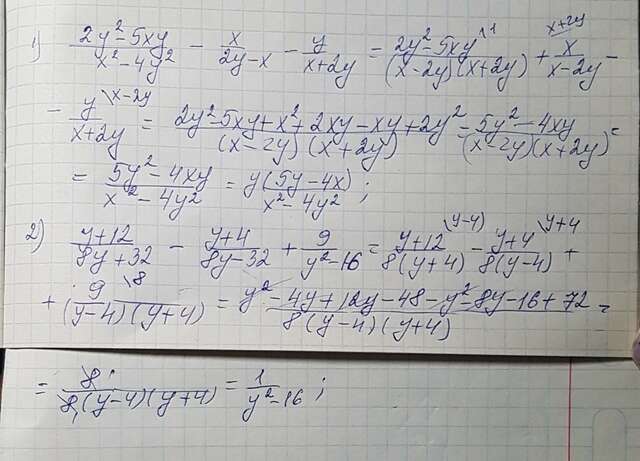 1) (2y²-5xy)/(x²-4y²) - x/(2y-x) - y/(x+2y) = (2y²-5xy\1)/((x-2y)(x+2y)) + (x\x+2y)/(x-2y) -
- (y\x-2y)/(x+2y) = (2y²-5xy+x²+2xy-xy+2y²)/((x-2y)(x+2y)) = (5y²-4xy)/((x-2y)(x+2y)) =
= (5y²-4xy)/(x²-4y²) = y(5y-4x)/(x²-4y²);
2) (y+12)/(8y+32) - (y+4)/(8y-32) + 9/(y²-16) = (y+12\(y-4))/(8(y+4)) - (y+4\y+4)/(8(y-4)) +
+ (9\8)/((y-4)(y+4)) = (y²-4y+12y-48-y²-8y-16+72)/(8(y-4)(y+4)) =
= 8/(8(y-4)(y+4)) = 1/(y²-16);